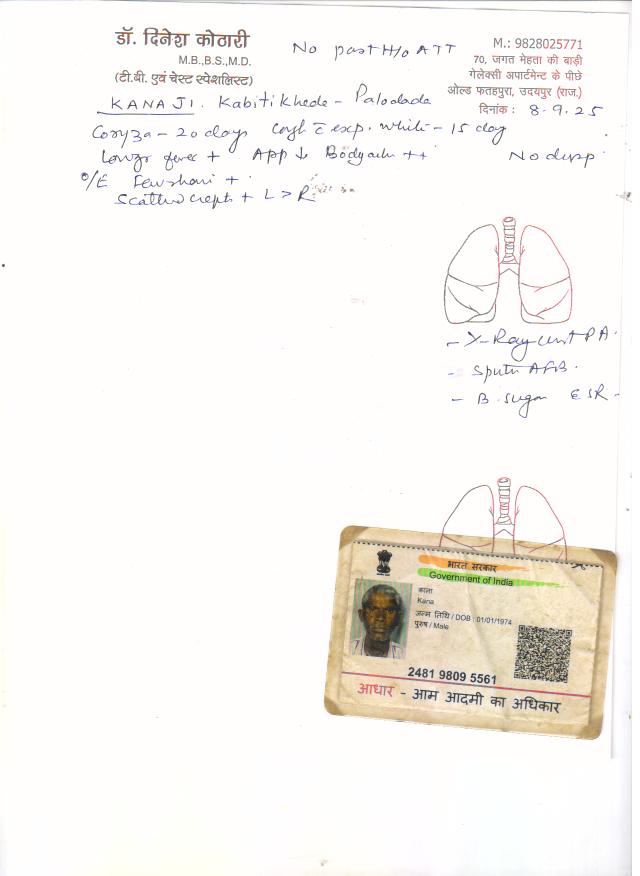 डॉ. दिनेश कोठारी
M.B.,B.S.,M.D.
(टी.बी. एवं चेस्ट स्पेशलिस्ट)
No past H/o ATT
M.: 9828025771
70, जगत मेहता की बाड़ी
गेलेक्सी अपार्टमेन्ट के पीछे
ओल्ड फतहपुरा, उदयपुर (राज.)
दिनांक : 8.9.25
KANA JI. Kabitikhede - Palodada
Coryza - 20 days cough c̄ exp. white - 15 day
fever + App ↓ Bodyache ++ No
O/E +
crepts + L > R
- X-Ray PA.
- Sputum AFB.
- B. sugar ESR -
भारत सरकार
Government of India
काना
Kana
जन्म तिथि / DOB : 01/01/1974
पुरुष / Male
2481 9809 5561
आधार - आम आदमी का अधिकार